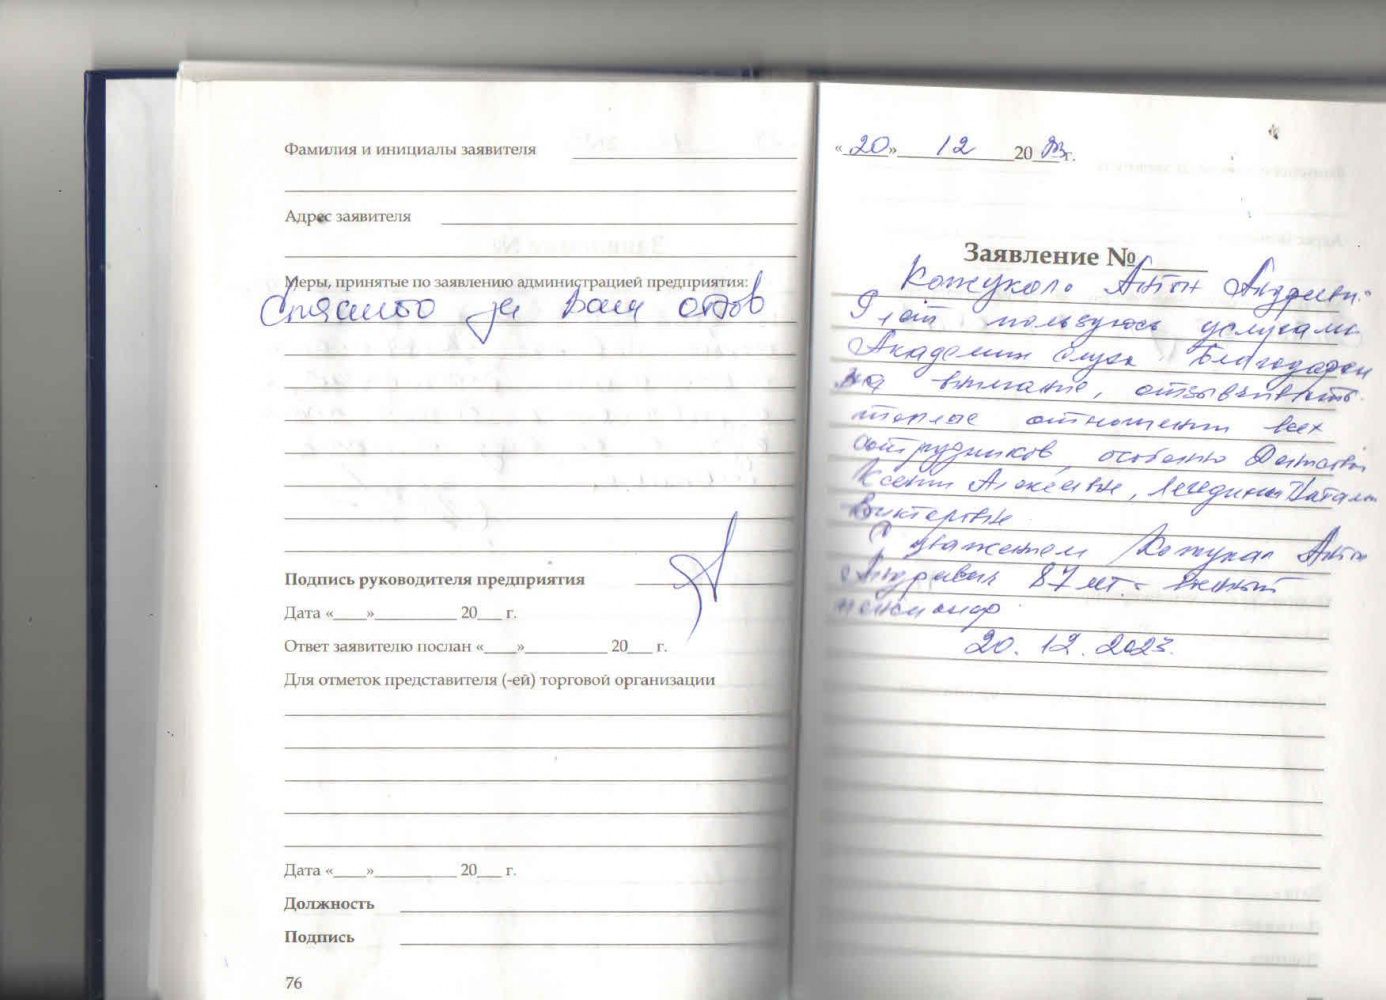 Фамилия и инициалы заявителя
Адрес заявителя
Меры, принятые по заявлению администрацией предприятия:
Спасибо за Ваш отзыв
Подпись руководителя предприятия
Дата «____»__________ 20___ г.
Ответ заявителю послан «____»__________ 20___ г.
Для отметок представителя (-ей) торговой организации
Дата «____»__________ 20___ г.
Должность
Подпись
76
«20» 12 2023 г.
Заявление №
Антон
9 лет пользуюсь услугами
Академии слуха. Благодарен
за внимание, отзывчивость
теплые отношении всех
сотрудников, особенно
Ксении Алексеевне,
Викторовне
С уважением Антон
87 лет
пенсионер
20.12.2023.